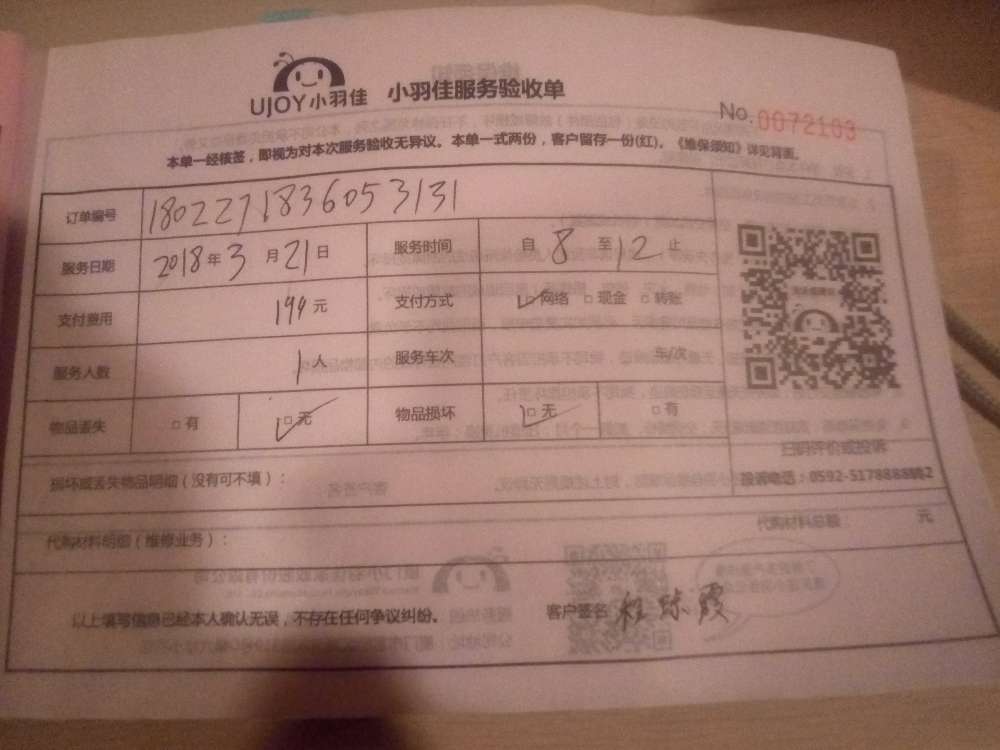 UJOY小羽佳 小羽佳服务验收单
No.0072103
本单一经核签，即视为对本次服务验收无异议。本单一式两份，客户留存一份(红)。《维保须知》详见背面。
订单编号 1802271836053131
服务日期 2018年3月21日 服务时间 自8至12止
支付费用 199元 支付方式 网络 现金 转账
服务人数 1人 服务车次 车/次
物品丢失 有 无 物品损坏 无 有
扫码评价或投诉
损坏或丢失物品明细（没有可不填）： 投诉电话：0592-5178888转2
代购材料明细（维修业务）： 代购材料总额： 元
以上填写信息已经本人确认无误，不存在任何争议纠纷。 客户签名